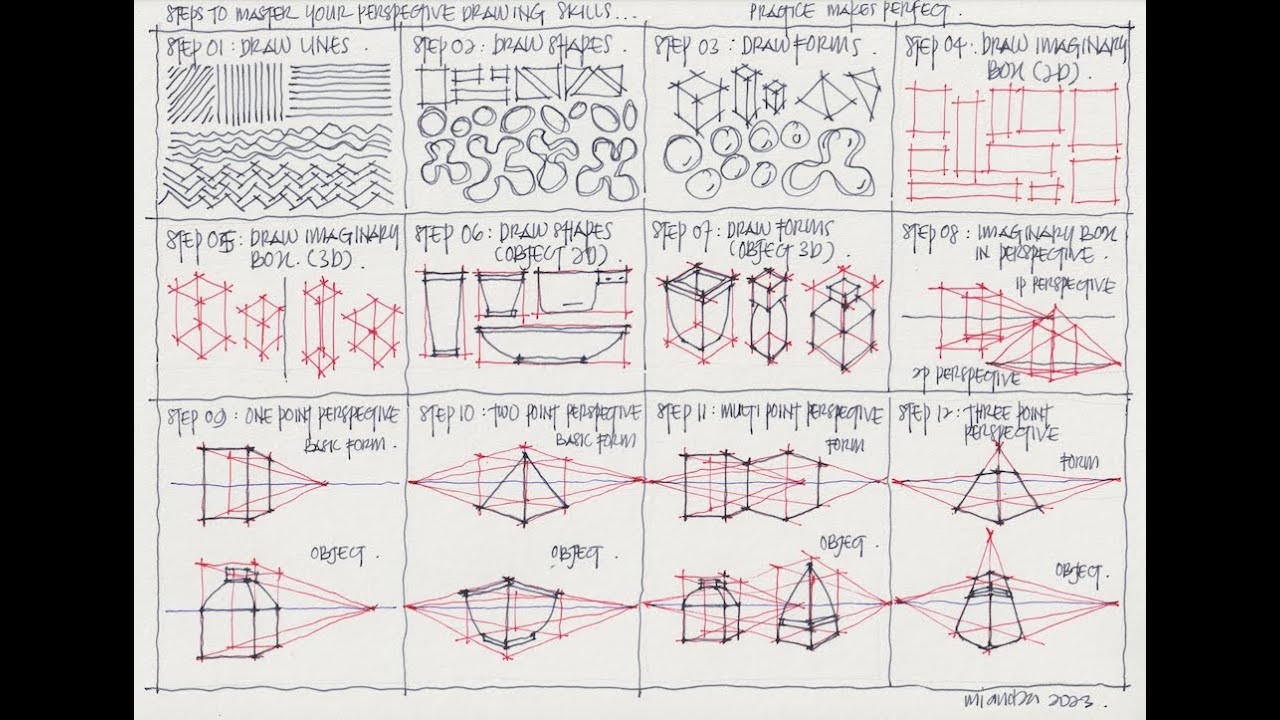 STEPS TO MASTER YOUR PERSPECTIVE DRAWING SKILLS... PRACTICE MAKES PERFECT.
STEP 01 : DRAW LINES.
STEP 02 : DRAW SHAPES.
STEP 03 : DRAW FORMS.
STEP 04 : DRAW IMAGINARY
BOX (2D).
STEP 05 : DRAW IMAGINARY
BOX. (3D).
STEP 06 : DRAW SHAPES
(OBJECT 2D).
STEP 07 : DRAW FORMS
(OBJECT 3D).
STEP 08 : IMAGINARY BOX
IN PERSPECTIVE.
1P PERSPECTIVE
2P PERSPECTIVE
STEP 09 : ONE POINT PERSPECTIVE
BASIC FORM.
OBJECT.
STEP 10 : TWO POINT PERSPECTIVE
BASIC FORM
OBJECT.
STEP 11 : MULTI POINT PERSPECTIVE
FORM
OBJECT.
STEP 12 : THREE POINT
PERSPECTIVE
FORM
OBJECT.
2023.